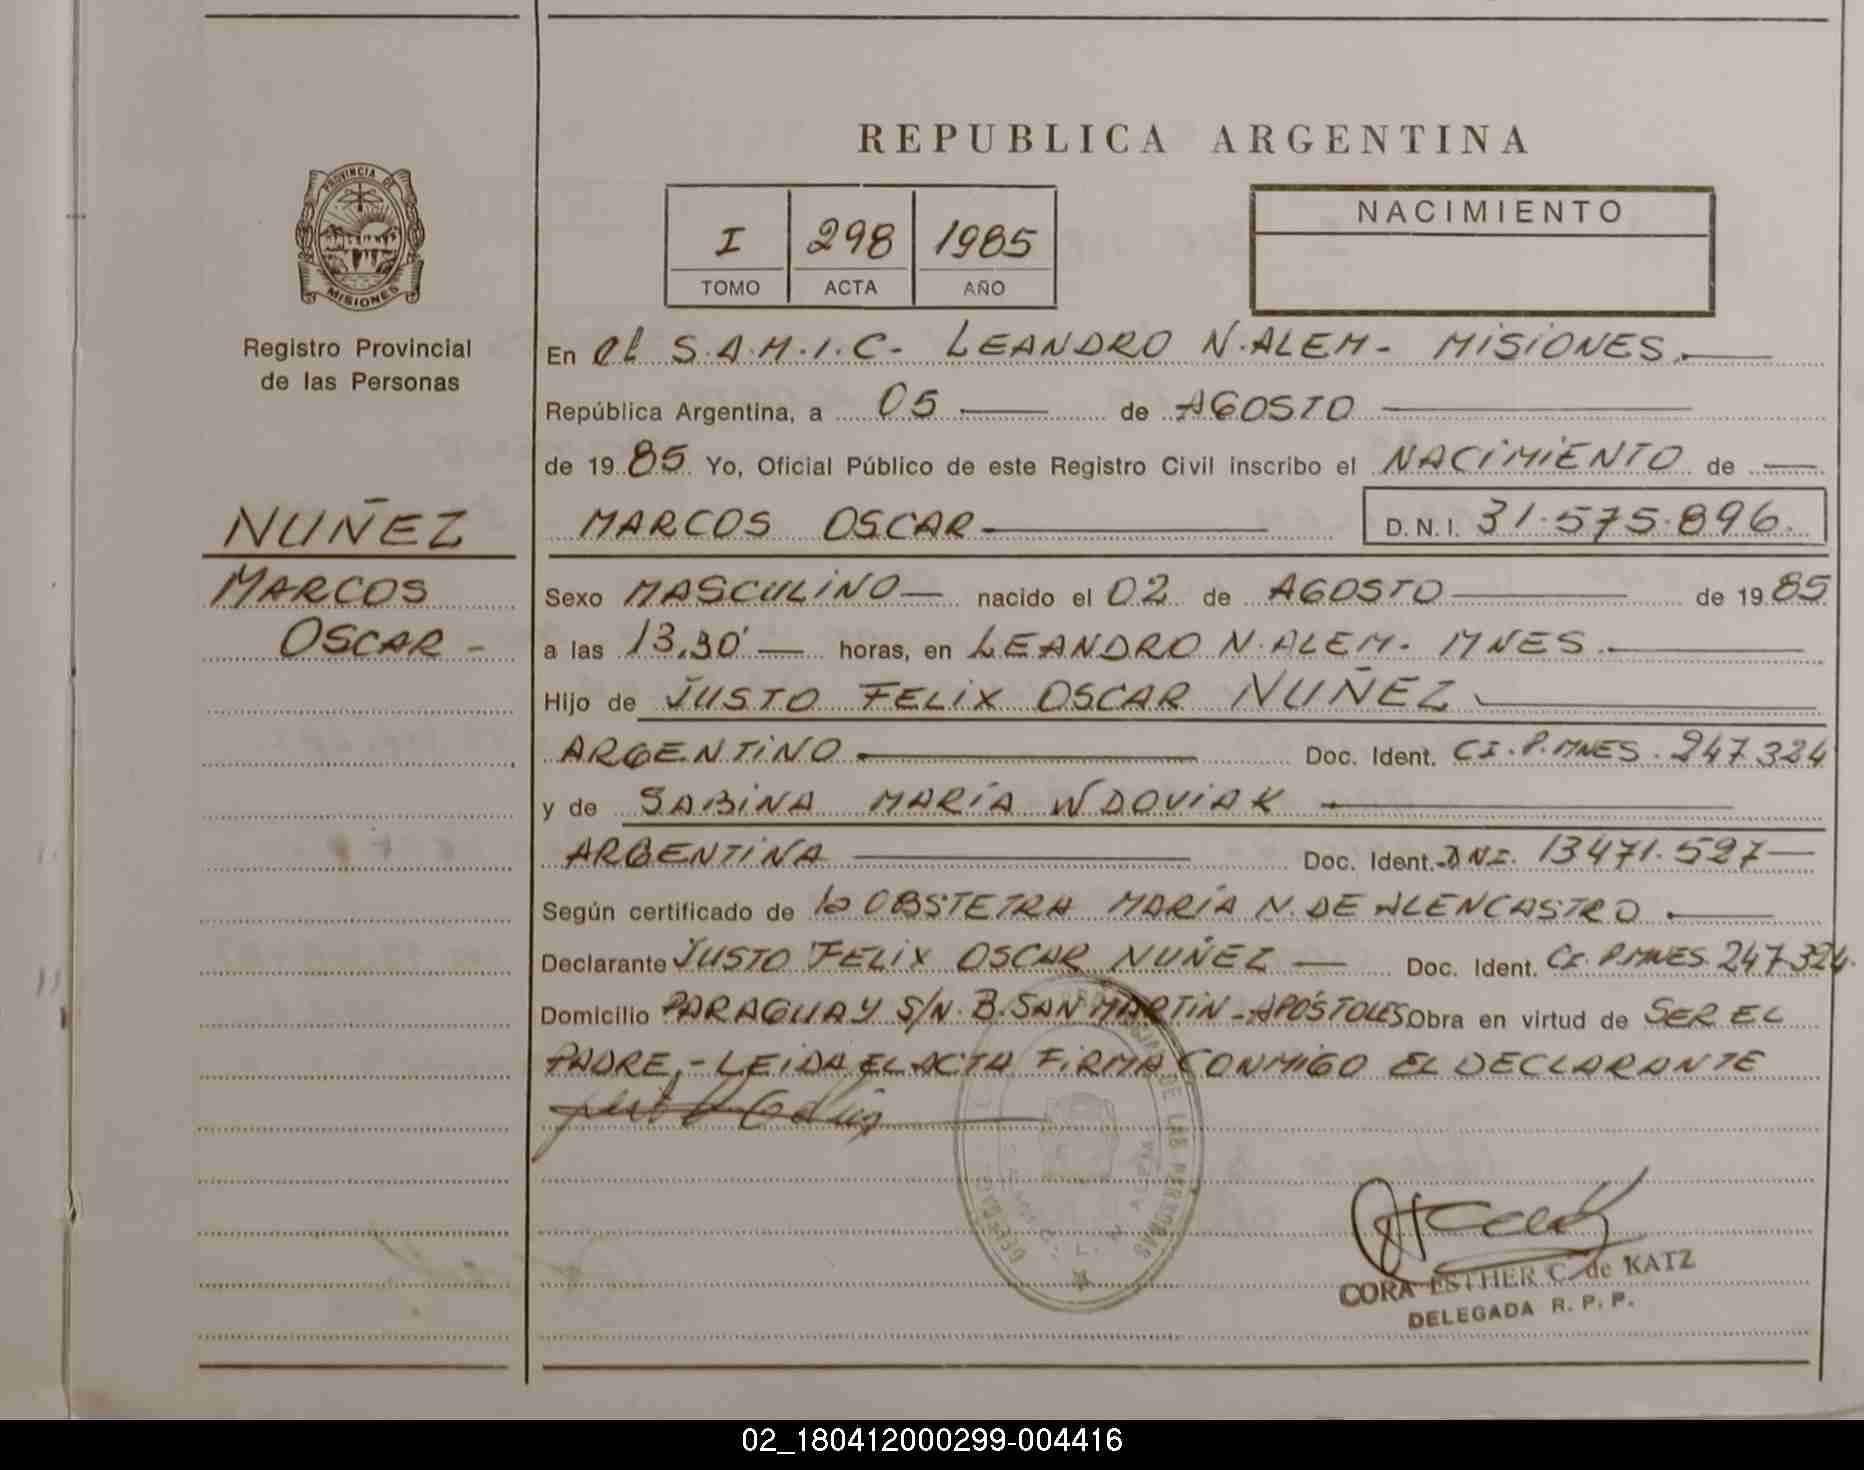 REPUBLICA ARGENTINA
PROVINCIA DE
MISIONES
Registro Provincial
de las Personas
I 298 1985
TOMO ACTA AÑO
NACIMIENTO
En el S.A.M.I.C- LEANDRO N.ALEM- MISIONES.
República Argentina, a 05 de AGOSTO
de 19 85 Yo, Oficial Público de este Registro Civil inscribo el NACIMIENTO de
NUÑEZ
MARCOS OSCAR D.N.I. 31.575.896.
MARCOS
OSCAR -
Sexo MASCULINO nacido el 02 de AGOSTO de 19 85
a las 13,30' horas, en LEANDRO N.ALEM- MNES.
Hijo de JUSTO FELIX OSCAR NUÑEZ
ARGENTINO Doc. Ident. CI.P.MNES.247.324
y de SABINA MARÍA WDOVIAK
ARGENTINA Doc. Ident. DNI. 13471.527
Según certificado de la OBSTETRA MARÍA N. DE ALENCASTRO.
Declarante JUSTO FELIX OSCAR NUÑEZ Doc. Ident. CI. P.MNES 247.324.
Domicilio PARAGUAY S/N. B. SAN MARTIN-APÓSTOLES Obra en virtud de SER EL
PADRE.- LEIDA EL ACTA FIRMA CONMIGO EL DECLARANTE
DE LAS PERSONAS
L. N. ALEM
CORA ESTHER C. de KATZ
DELEGADA R. P. P.
02_180412000299-004416